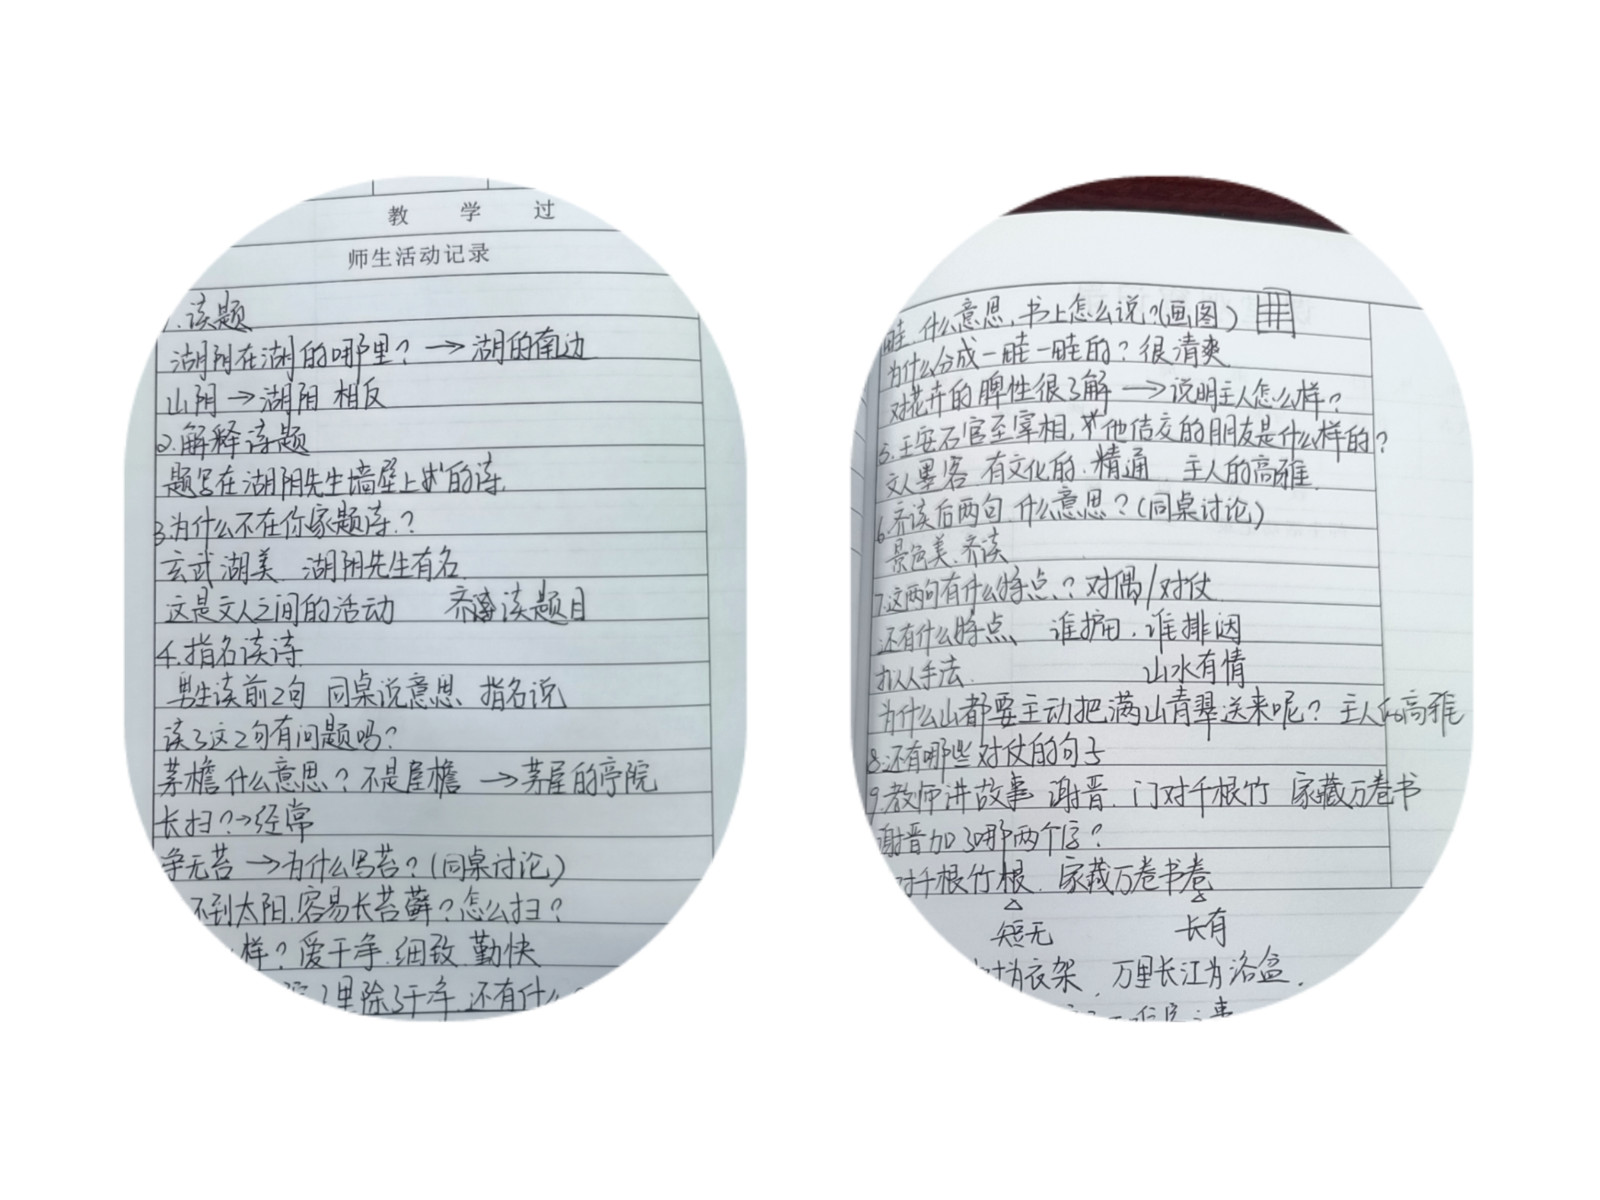 教 学 过
师生活动记录
1.读题
湖阴在湖的哪里？→湖的南边
山阴→湖阴 相反
2.解释诗题
题写在湖阴先生墙壁上的诗.
3.为什么不在你家题诗.？
玄武湖美 湖阴先生有名
这是文人之间的活动 齐读题目
4.指名读诗
男生读前2句 同桌说意思、指名说
读了这2句有问题吗？
茅檐什么意思？不是屋檐→茅屋的亭院
长扫？→经常
净无苔→为什么写苔？(同桌讨论)
不到太阳.容易长苔藓？怎么扫？
样？爱干净.细致 勤快
里除了干净.还有什么
畦.什么意思.书上怎么说？(画图)
为什么分成一畦一畦的？很清爽
对花卉的脾性很了解→说明主人怎么样？
5.王安石官至宰相,他结交的朋友是什么样的？
文人墨客 有文化的.精通 主人的高雅
6.齐读后两句.什么意思？(同桌讨论)
景色美.齐读
7.这两句有什么特点.？对偶/对仗
还有什么特点、 谁护田.谁排闼
拟人手法. 山水有情
为什么山都要主动把满山青翠送来呢？主人的高雅
8.还有哪些对仗的句子
9.教师讲故事 谢晋.门对千根竹 家藏万卷书
谢晋加了哪两个字？
对千根竹根. 家藏万卷书卷
短无 长有
为衣架,万里长江为浴盆.